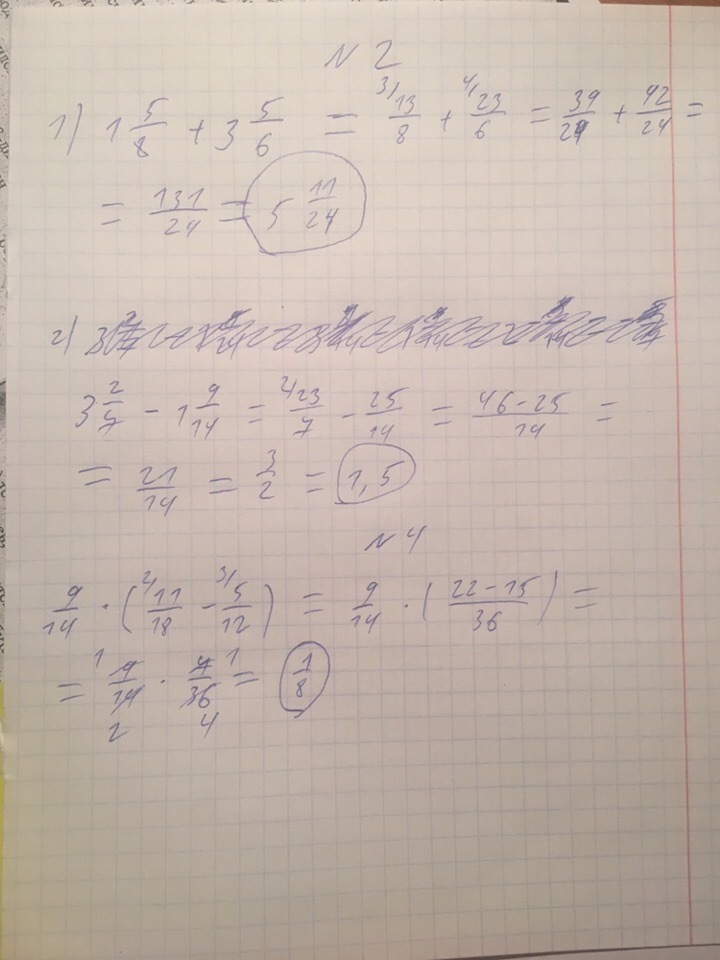 N 2
1) 1 5/8 + 3 5/6 = 3/ 13/8 + 4/ 23/6 = 39/24 + 92/24 =
= 131/24 = 5 11/24
2)
3 2/7 - 1 9/14 = 2/ 23/7 - 25/14 = 46-25/14 =
= 21/14 = 3/2 = 1,5
N 4
9/14 · (2/ 11/18 - 3/ 5/12) = 9/14 · (22-15/36) =
= 1 9/14 2 · 7/36 1 4 = 1/8